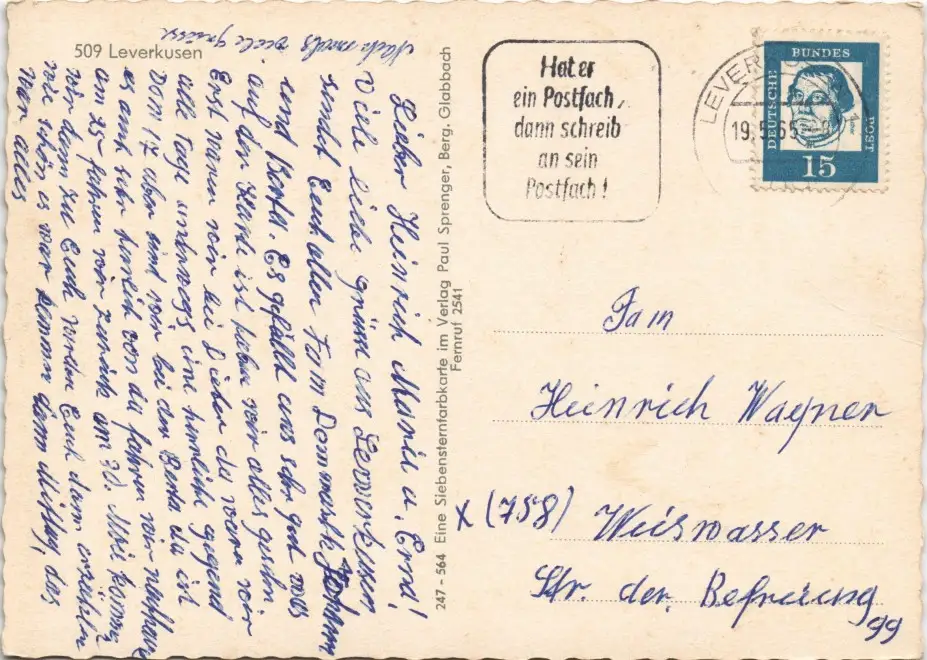 509 Leverkusen
Nochmals viele Grüsse
Lieber Heinrich Maria u. Erna!
Viele liebe Grüße aus Leverkusen
sendet Euch allen Fam Dommank Johann
und Berta. Es gefällt uns sehr gut was
auf der Karte ist haben wir alles gesehn.
Erst waren wir bei Dieter da waren wir
alle Tage unterwegs, eine herrliche gegend
Dom 17 aber sind wir bei der Berta da ist
es auch sehr von da fahren wir
am 25 fahren wir zurück am 30. Mai kommen
wir dann zu Euch werden Euch dann erzählen
wie schön es war kommen dann Mittag, das
war alles
247 - 564 Eine Siebensternfarbkarte im Verlag Paul Sprenger, Berg. Gladbach
Fernruf 2541
Hat er
ein Postfach,
dann schreib
an sein
Postfach!
LEVERKUSEN
19.5.65
1
DEUTSCHE
BUNDES
POST
15
Fam
Heinrich Wagner
X (758) Weiswasser
Str. der. Befreiung
99